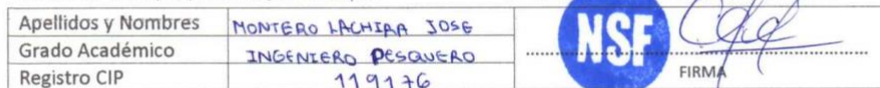 Apellidos y Nombres MONTERO LACHIRA JOSE
Grado Académico INGENIERO PESQUERO
Registro CIP 119176
NSF
FIRMA